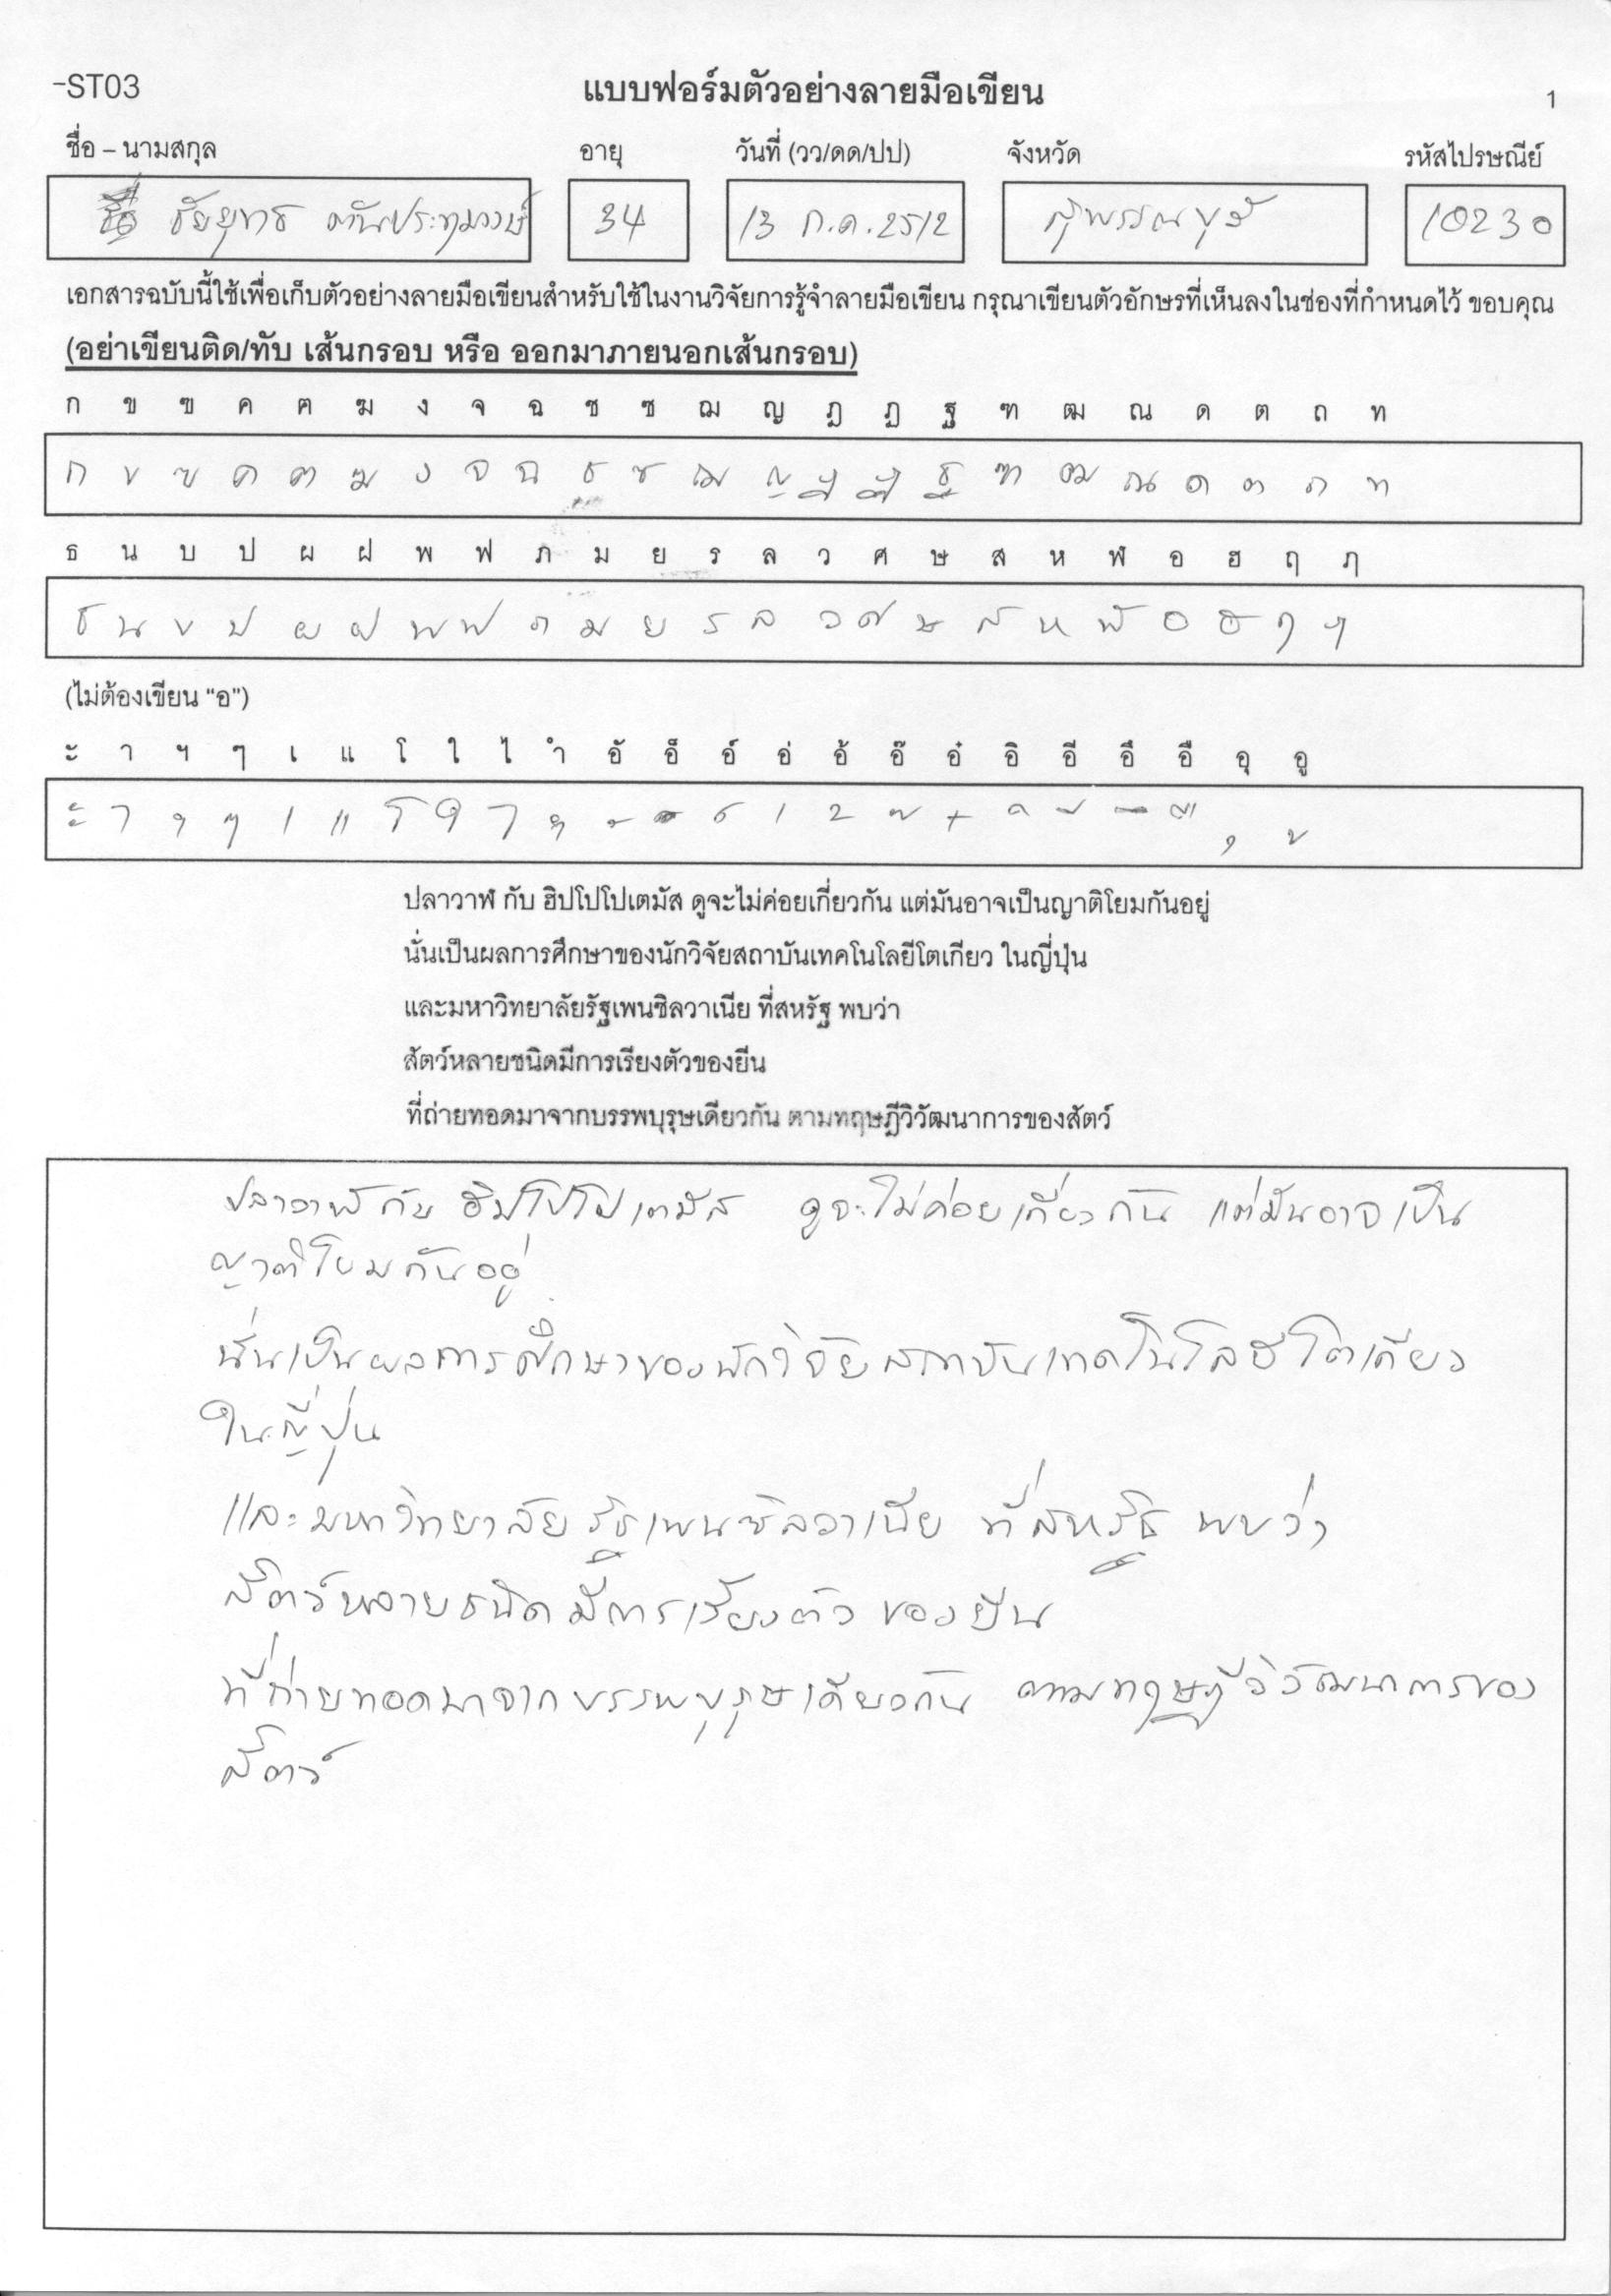 -ST03
แบบฟอร์มตัวอย่างลายมือเขียน
1
ชื่อ – นามสกุล อายุ วันที่ (วว/ดด/ปป) จังหวัด รหัสไปรษณีย์
ชัยยุทธ 34 13 ก.ค. 2512 สุพรรณบุรี 10230
เอกสารฉบับนี้ใช้เพื่อเก็บตัวอย่างลายมือเขียนสำหรับใช้ในงานวิจัยการรู้จำลายมือเขียน กรุณาเขียนตัวอักษรที่เห็นลงในช่องที่กำหนดไว้ ขอบคุณ
(อย่าเขียนติด/ทับ เส้นกรอบ หรือ ออกมาภายนอกเส้นกรอบ)
ก ข ฃ ค ฅ ฆ ง จ ฉ ช ซ ฌ ญ ฎ ฏ ฐ ฑ ฒ ณ ด ต ถ ท
ก ข ฃ ค ฅ ฆ ง จ ฉ ช ซ ฌ ญ ฎ ฏ ฐ ฑ ฒ ณ ด ต ถ ท
ธ น บ ป ผ ฝ พ ฟ ภ ม ย ร ล ว ศ ษ ส ห ฬ อ ฮ ฤ ฦ
ธ น บ ป ผ ฝ พ ฟ ภ ม ย ร ล ว ศ ษ ส ห ฬ อ ฮ ฤ ฦ
(ไม่ต้องเขียน “อ”)
ะ า ฯ ๆ เ แ โ ใ ไ ำ อั อ็ อ์ อ่ อ้ อ๊ อ๋ อิ อี อึ อื อุ อู
ะ า ฯ ๆ เ แ โ ใ ไ ำ ั ็ ์ ่ ้ ๊ ๋ ิ ี ึ ื ุ ู
ปลาวาฬ กับ ฮิปโปโปเตมัส ดูจะไม่ค่อยเกี่ยวกัน แต่มันอาจเป็นญาติโยมกันอยู่
นั่นเป็นผลการศึกษาของนักวิจัยสถาบันเทคโนโลยีโตเกียว ในญี่ปุ่น
และมหาวิทยาลัยรัฐเพนซิลวาเนีย ที่สหรัฐ พบว่า
สัตว์หลายชนิดมีการเรียงตัวของยีน
ที่ถ่ายทอดมาจากบรรพบุรุษเดียวกัน ตามทฤษฎีวิวัฒนาการของสัตว์
ปลาวาฬ กับ ฮิปโปโปเตมัส ดูจะไม่ค่อยเกี่ยวกัน แต่มันอาจเป็น
ญาติโยมกันอยู่
นั่นเป็นผลการศึกษาของนักวิจัยสถาบันเทคโนโลยีโตเกียว
ในญี่ปุ่น
และมหาวิทยาลัยรัฐเพนซิลวาเนีย ที่สหรัฐ พบว่า
สัตว์หลายชนิดมีการเรียงตัวของยีน
ที่ถ่ายทอดมาจากบรรพบุรุษเดียวกัน ตามทฤษฎีวิวัฒนาการของ
สัตว์